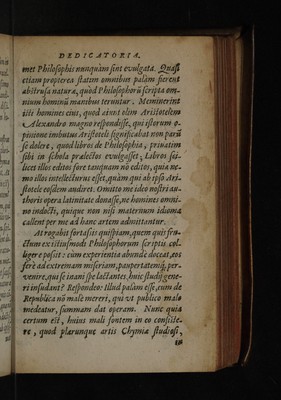 DEDICATORIA.
met Philosophis nunquàm sint evulgata. Quasi
etiam propterea statim omnibus palàm fierent
abstrusa naturæ, quòd Philosophorũ scripta om-
nium hominũ manibus teruntur. Meminerint
illi hominis eius, quod aiunt olim Aristotelem
Alexandro magno respondisse, qui istorum o-
pinione imbutus Aristoteli significabat non parũ
se dolere, quod libros de Philosophia, privatim
sibi in schola prælectos evulgasset, Libros sci-
licet illos editos fore tanquam nõ editos, quia ne-
mo illos intellecturus esset, quàm qui ab ipso Ari-
stotele eosdem audiret. Omitto me ideo nostri au-
thoris opera latinitate donasse, ne homines omni-
no indocti, quique non nisi maternum idioma
callent per me ad hanc artem admittantur.
At rogabit fortasis quispiam, quem quis fru-
ctum ex istiusmodi Philosophorum scriptis col-
ligere possit: cum experientia abundè doceat, eos
ferè ad extremam miseriam, paupertatemq́; per-
venire, qui se inani spe lactantes, huic studij gene-
ri insudant? Respondeo: Illud palàm esse, eum de
Republica nõ malè mereri, qui vt publico malo
medeatur, summam dat operam. Nunc quia
certum est, huius mali fontem in eo consiste-
re, quod plærunque artis Chymiæ studiosi,